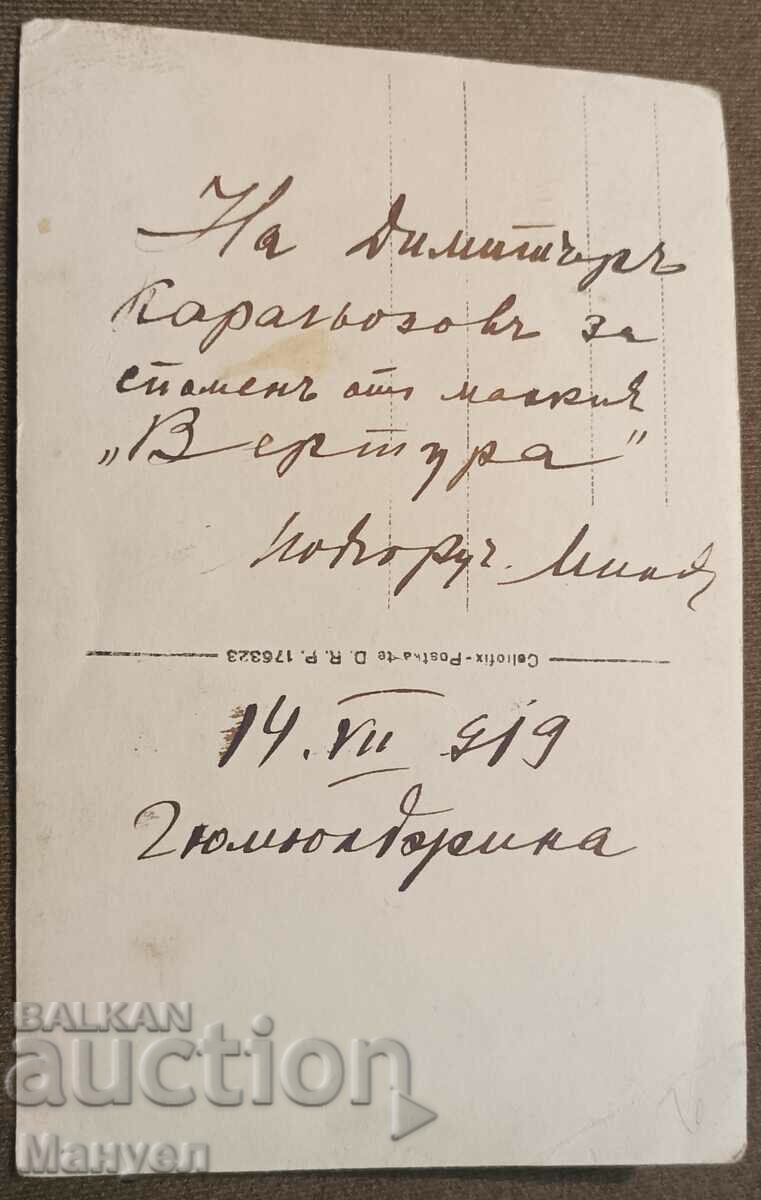 На Димитъръ
Карагьозовъ за
споменъ отъ малкия
„Вертура"
Подпоруч.
Celiofix-Postkarte D. R. P. 176323
14. VII 919
Гюмюлджина
BALKAN
auction
Мануел